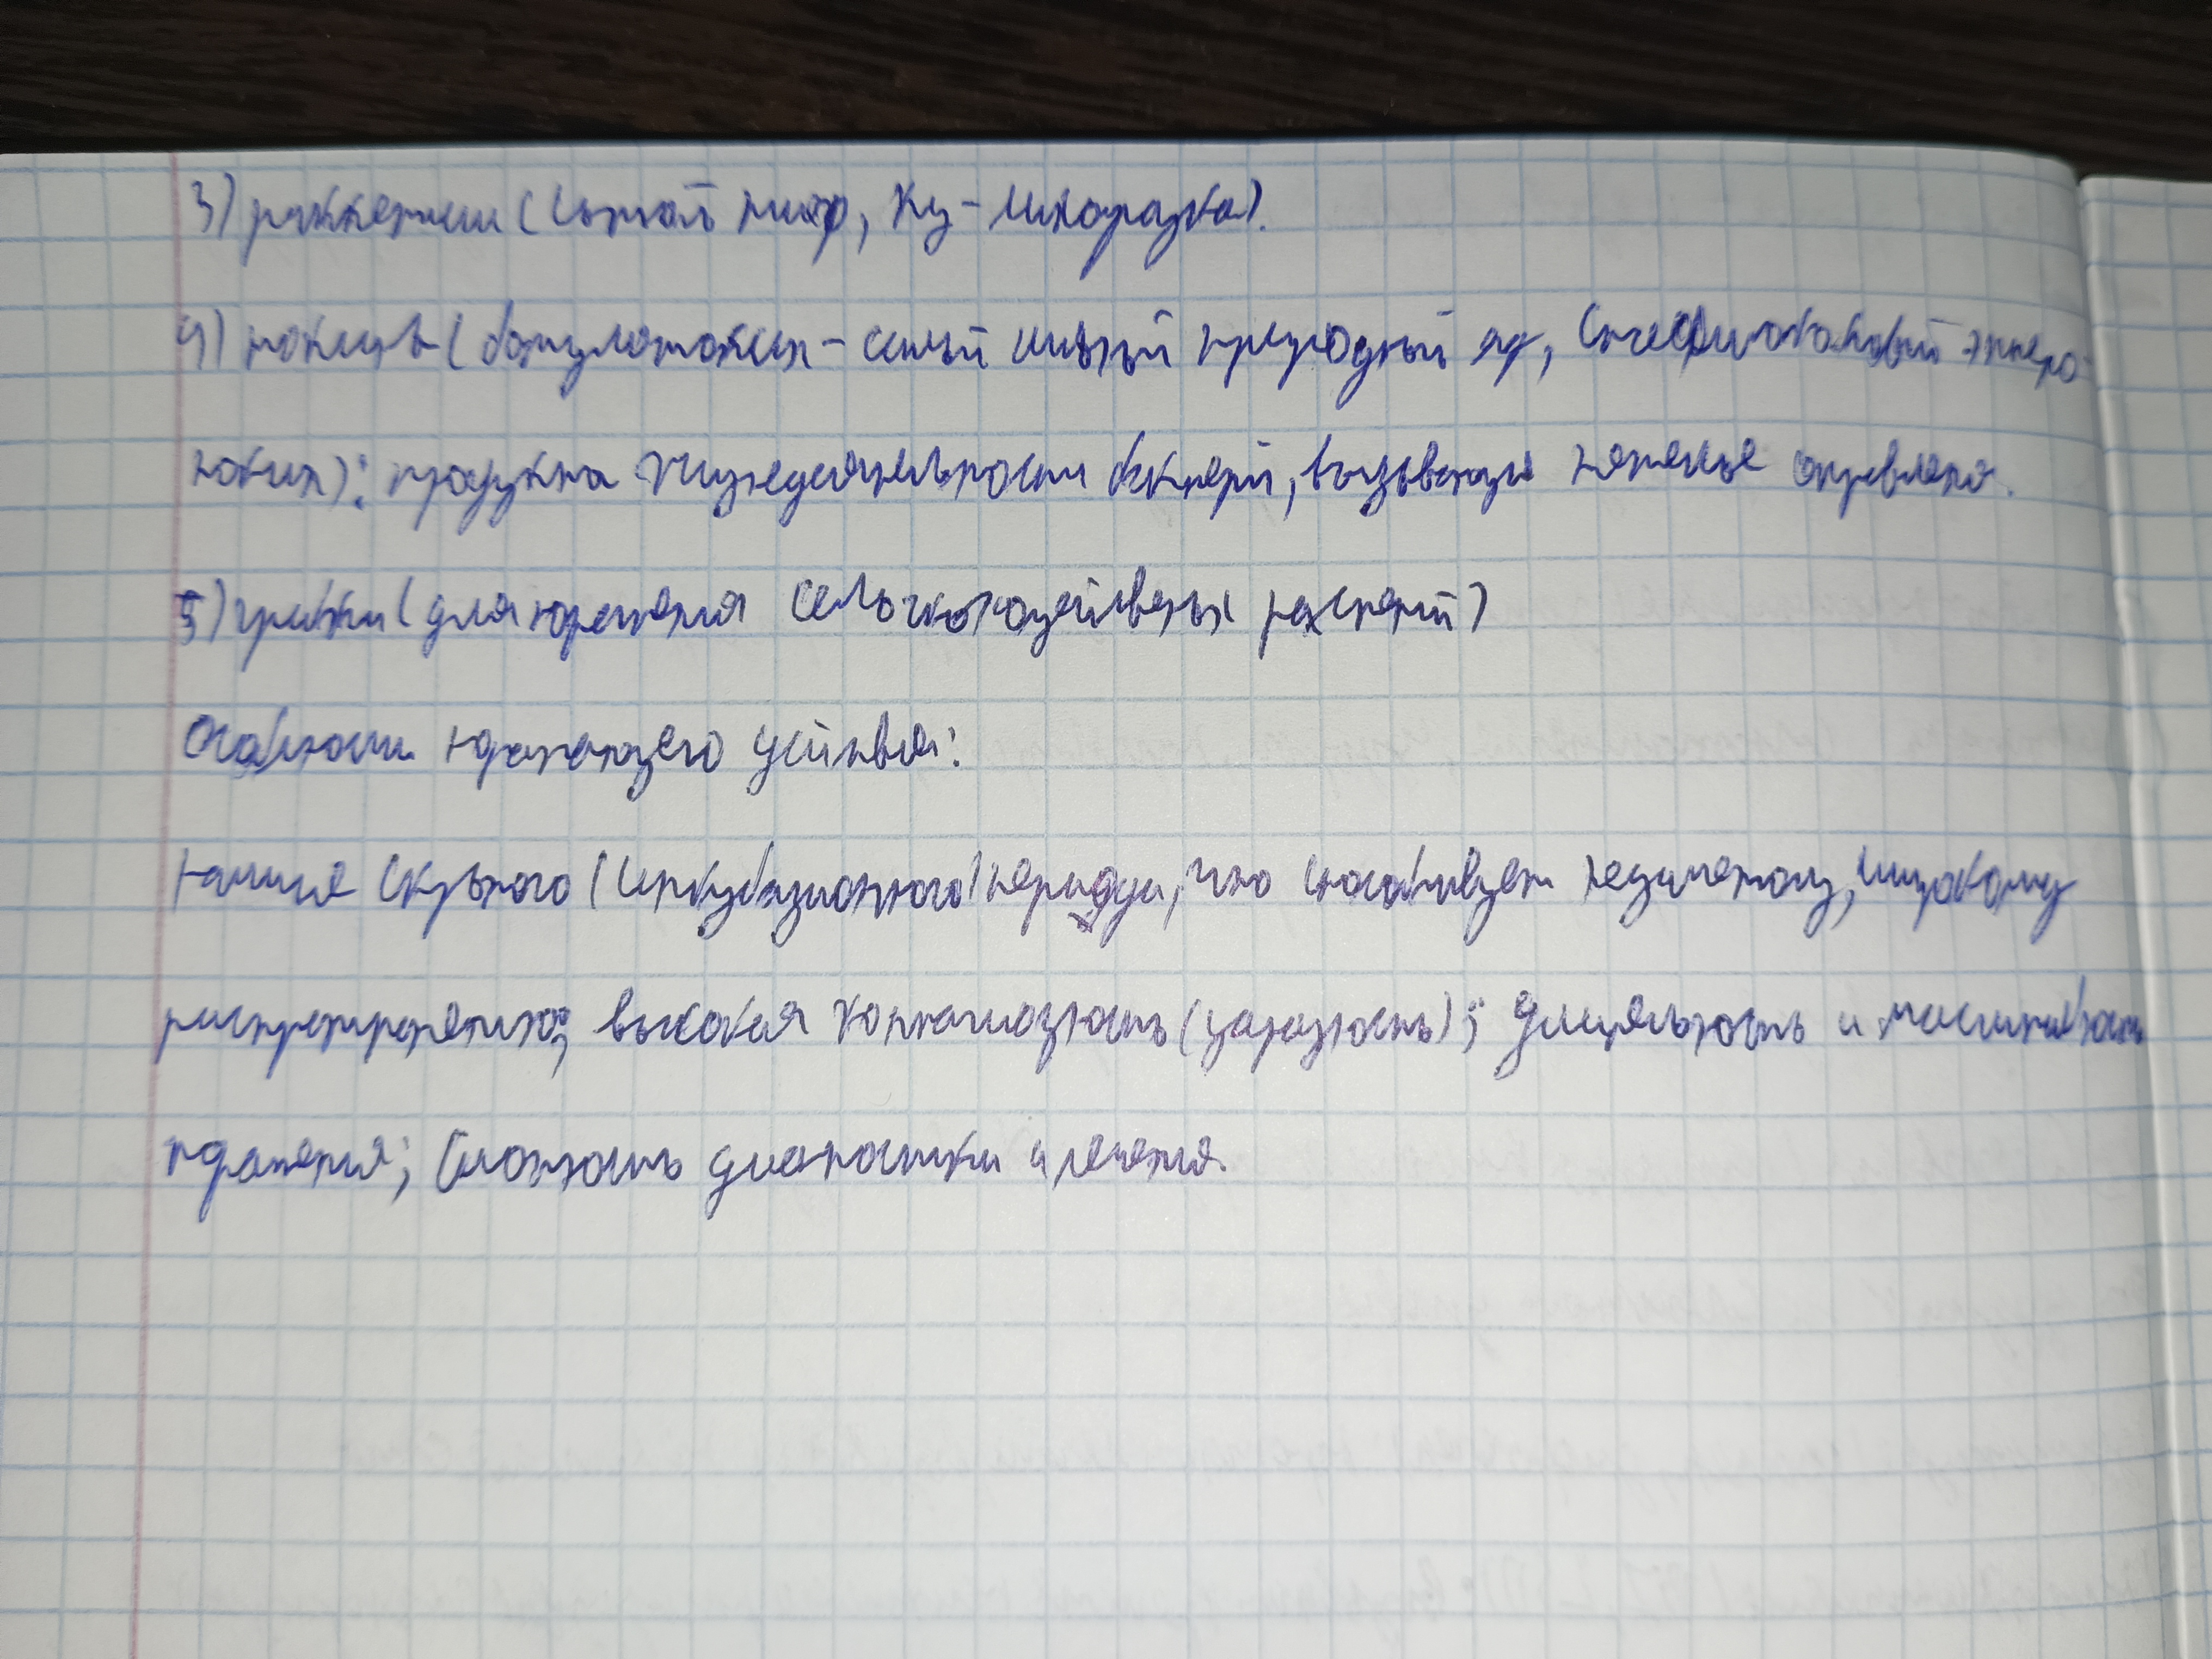 3) риккетсии (сыпной тиф, Ку-лихорадка).
4) токсины (ботулотоксин - самый сильный природный яд, стафилококковый энтеро-
токсин): продукты жизнедеятельности бактерий, вызывающие тяжелые отравления.
5) грибки (для поражения сельскохозяйственных растений)
Особенности поражающего действия:
наличие скрытого (инкубационного) периода, что способствует незаметному, широкому
распространению; высокая контагиозность (заразность); длительность и масштабность
поражения; сложность диагностики и лечения.